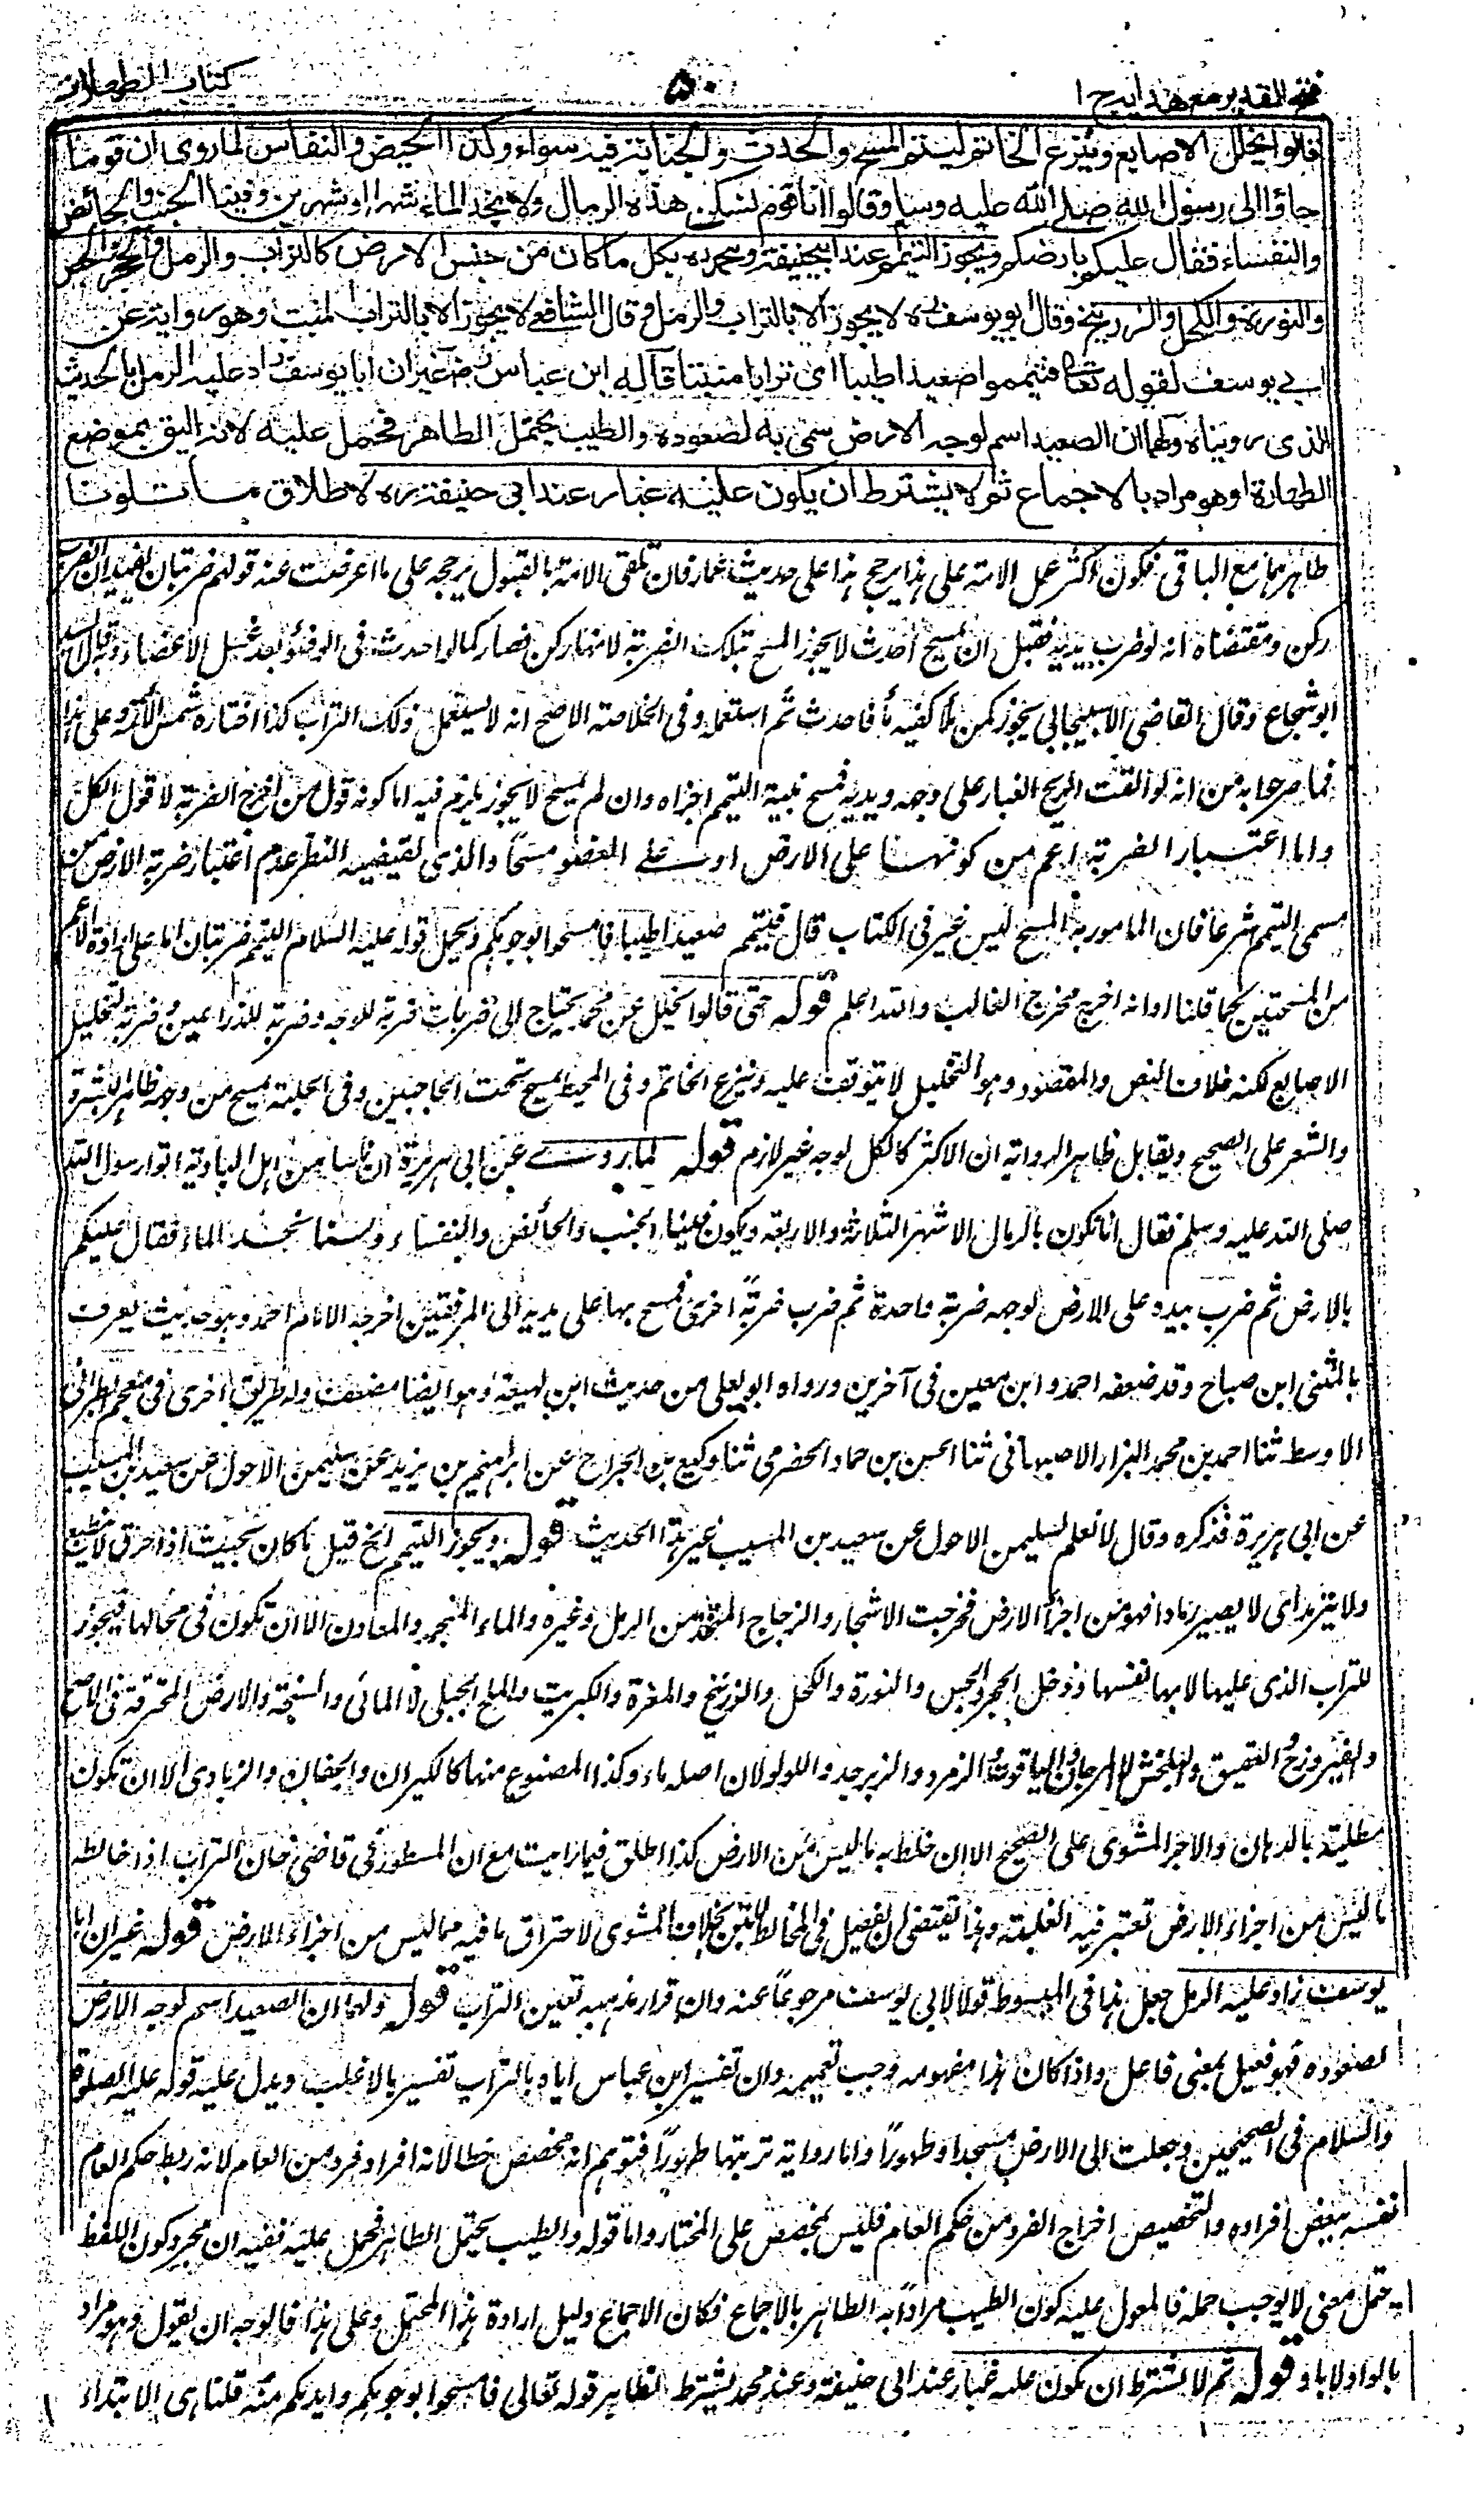 فتح القدير مع هدايه ج ١
٥٠
كتاب الطهارات
قالوا يخلل الاصابع وينزع الخاتم ليتم المسح والحدث والجنابة فيه سواء وكذا الحيض والنفاس لما روى ان قوما
جاؤا الى رسول الله صلى الله عليه وسلم وقالوا انا قوم نسكن هذه الرمال ولا نجد الماء شهرا او شهرين وفينا الجنب والحائض
والنفساء فقال عليكم بارضكم ويجوز التيمم عند ابي حنيفة ومحمد ره بكل ما كان من جنس الارض كالتراب والرمل والحجر والجص
والنورة والكحل والزرنيخ وقال ابو يوسف ره لا يجوز الا بالتراب والرمل وقال الشافعي لا يجوز الا بالتراب المنبت وهو رواية عن
ابي يوسف لقوله تعالى فتيمموا صعيدا طيبا اى ترابا منبتا قاله ابن عباس رض غير ان ابا يوسف زاد عليه الرمل بالحديث
الذى رويناه ولهما ان الصعيد اسم لوجه الارض سمى به لصعوده والطيب يحتمل الطاهر فحمل عليه لانه اليق بموضع
الطهارة او هو مراد بالاجماع ثم لا يشترط ان يكون عليه غبار عند ابى حنيفة ره لاطلاق ما تلونا
طاهر مع الباقى فيكون اكثر عمل الامة على هذا يرجح هذا على حديث عمار فان تلقى الامة بالقبول يرجحه على ما اعرضت عنه قولهم ضربتان يفيد ان الضرب
ركن ومقتضاه انه لو ضرب يديه فقبل ان يمسح احدث لا يجوز المسح بتلك الضربة لانها ركن فصار كما لو احدث فى الوضوء بعد غسل الاعضاء وبه قال السيد
ابو شجاع وقال القاضى الاسبيجابى يجوز كمن ملأ كفيه ماء فاحدث ثم استعمله وفى الخلاصة الاصح انه لا يستعمل ذلك التراب كذا اختاره شمس الأئمة وعلى هذا
فما صرحوا به من انه لو القت الريح الغبار على وجهه ويديه فمسح بنية التيمم اجزاه وان لم يمسح لا يجوز يلزم فيه اما كونه قول من اخرج الضربة لا قول الكل
واما اعتبار الضربة اعم من كونها على الارض او على العضو مسحا والذى يقتضيه النظر عدم اعتبار ضربة الارض من
مسمى التيمم شرعا فان المامور به المسح ليس غير فى الكتاب قال فتيمموا صعيدا طيبا فامسحوا بوجوهكم ويحمل قوله عليه السلام التيمم ضربتان اما على ارادة الاعم
من المسحتين كما قلنا او انه اخرج مخرج الغالب والله اعلم قوله حتى قالوا يخلل عن محمد يحتاج الى ضربات ضربة للوجه وضربة للذراعين وضربة لتخليل
الاصابع لكنه خلاف النص والمقصود وهو التخليل لا يتوقف عليه وينزع الخاتم وفى المحيط يمسح تحت الحاجبين وفى الحلية يمسح من وجهه ظاهر البشرة
والشعر على الصحيح ويقابل ظاهر الرواية ان الاكثر كالكل لوجه غير لازم قوله لما روى عن ابى هريرة ان ناسا من اهل البادية اتوا رسول الله
صلى الله عليه وسلم فقال انا نكون بالرمال الاشهر الثلاثة والاربعة ويكون فينا الجنب والحائض والنفساء ولسنا نجد الماء فقال عليكم
بالارض ثم ضرب بيده على الارض لوجهه ضربة واحدة ثم ضرب ضربة اخرى فمسح بها على يديه الى المرفقين اخرجه الامام احمد وهو حديث يعرف
بالمثنى ابن صباح وقد ضعفه احمد وابن معين فى آخرين ورواه ابو يعلى من حديث ابن لهيعة وهو ايضا مضعف وله طريق اخرى فى معجم الطبرانى
الاوسط ثنا احمد بن محمد البزار الاصبهانى ثنا الحسن بن حماد الحضرمى ثنا وكيع بن الجراح عن ابرهيم بن يزيد عن سليمن الاحول عن سعيد بن المسيب
عن ابى هريرة فذكره وقال لا نعلم لسليمن الاحول عن سعيد بن المسيب غير هذا الحديث قوله ويجوز التيمم الخ قيل ما كان بحيث اذا حرق لا ينطبع
ولا يترمد اى لا يصير رمادا فهو من اجزاء الارض فخرجت الاشجار والزجاج المتخذ من الرمل وغيره والماء المتجمد والمعادن الا ان تكون فى محالها فيجوز
للتراب الذى عليها لا بها نفسها ودخل الحجر والجص والنورة والكحل والزرنيخ والمغرة والكبريت والملح الجبلى لا المائى والسبخة والارض المحترقة فى الاصح
والفيروزج والعقيق والبلخش لا المرجان والياقوت والزمرد والزبرجد واللولو لان اصله ماء وكذا المصنوع منها كالكيزان والجفان والزبادى الا ان تكون
مطلية بالدهان والاجر المشوى على الصحيح الا ان خلط به ما ليس من الارض كذا اطلق فيما رايت مع ان المسطور فى قاضى خان التراب اذا خالطه
ما ليس من اجزاء الارض تعتبر فيه الغلبة وهذا يقتضى ان يفصل فى المخالط للبن بخلاف المشوى لاحتراق ما فيه مما ليس من اجزاء الارض قوله غير ان ابا
يوسف زاد عليه الرمل جعل هذا فى المبسوط قولا لابى يوسف مرجوعا عنه وان قرار مذهبه تعين التراب قوله ولهما ان الصعيد اسم لوجه الارض
لصعوده فهو فعيل بمعنى فاعل واذا كان هذا مفهومه وجب تعميمه وان تفسير ابن عباس اياه بالتراب تفسير بالاغلب ويدل عليه قوله عليه الصلوة
والسلام فى الصحيحين وجعلت الى الارض مسجدا وطهورا واما رواية تربتها طهورا فتوهم انه مخصص خطا لانه افراد فرد من العام لانه ربط حكم العام
نفسه ببعض افراده والتخصيص اخراج الفرد من حكم العام فليس بمخصص على المختار واما قوله والطيب يحتمل الطاهر فحمل عليه ففيه ان مجرد كون اللفظ
يحتمل معنى لا يوجب حمله فالمعول عليه كون الطيب مرادا به الطاهر بالاجماع فكان الاجماع دليل ارادة هذا المحتمل وعلى هذا فالوجه ان يقول وهو مراد
بالواو لا باو قوله ثم لا يشترط ان يكون عليه غبار عند ابى حنيفة وعند محمد يشترط لظاهر قوله تعالى فامسحوا بوجوهكم وايديكم منه قلنا هى الابتداء